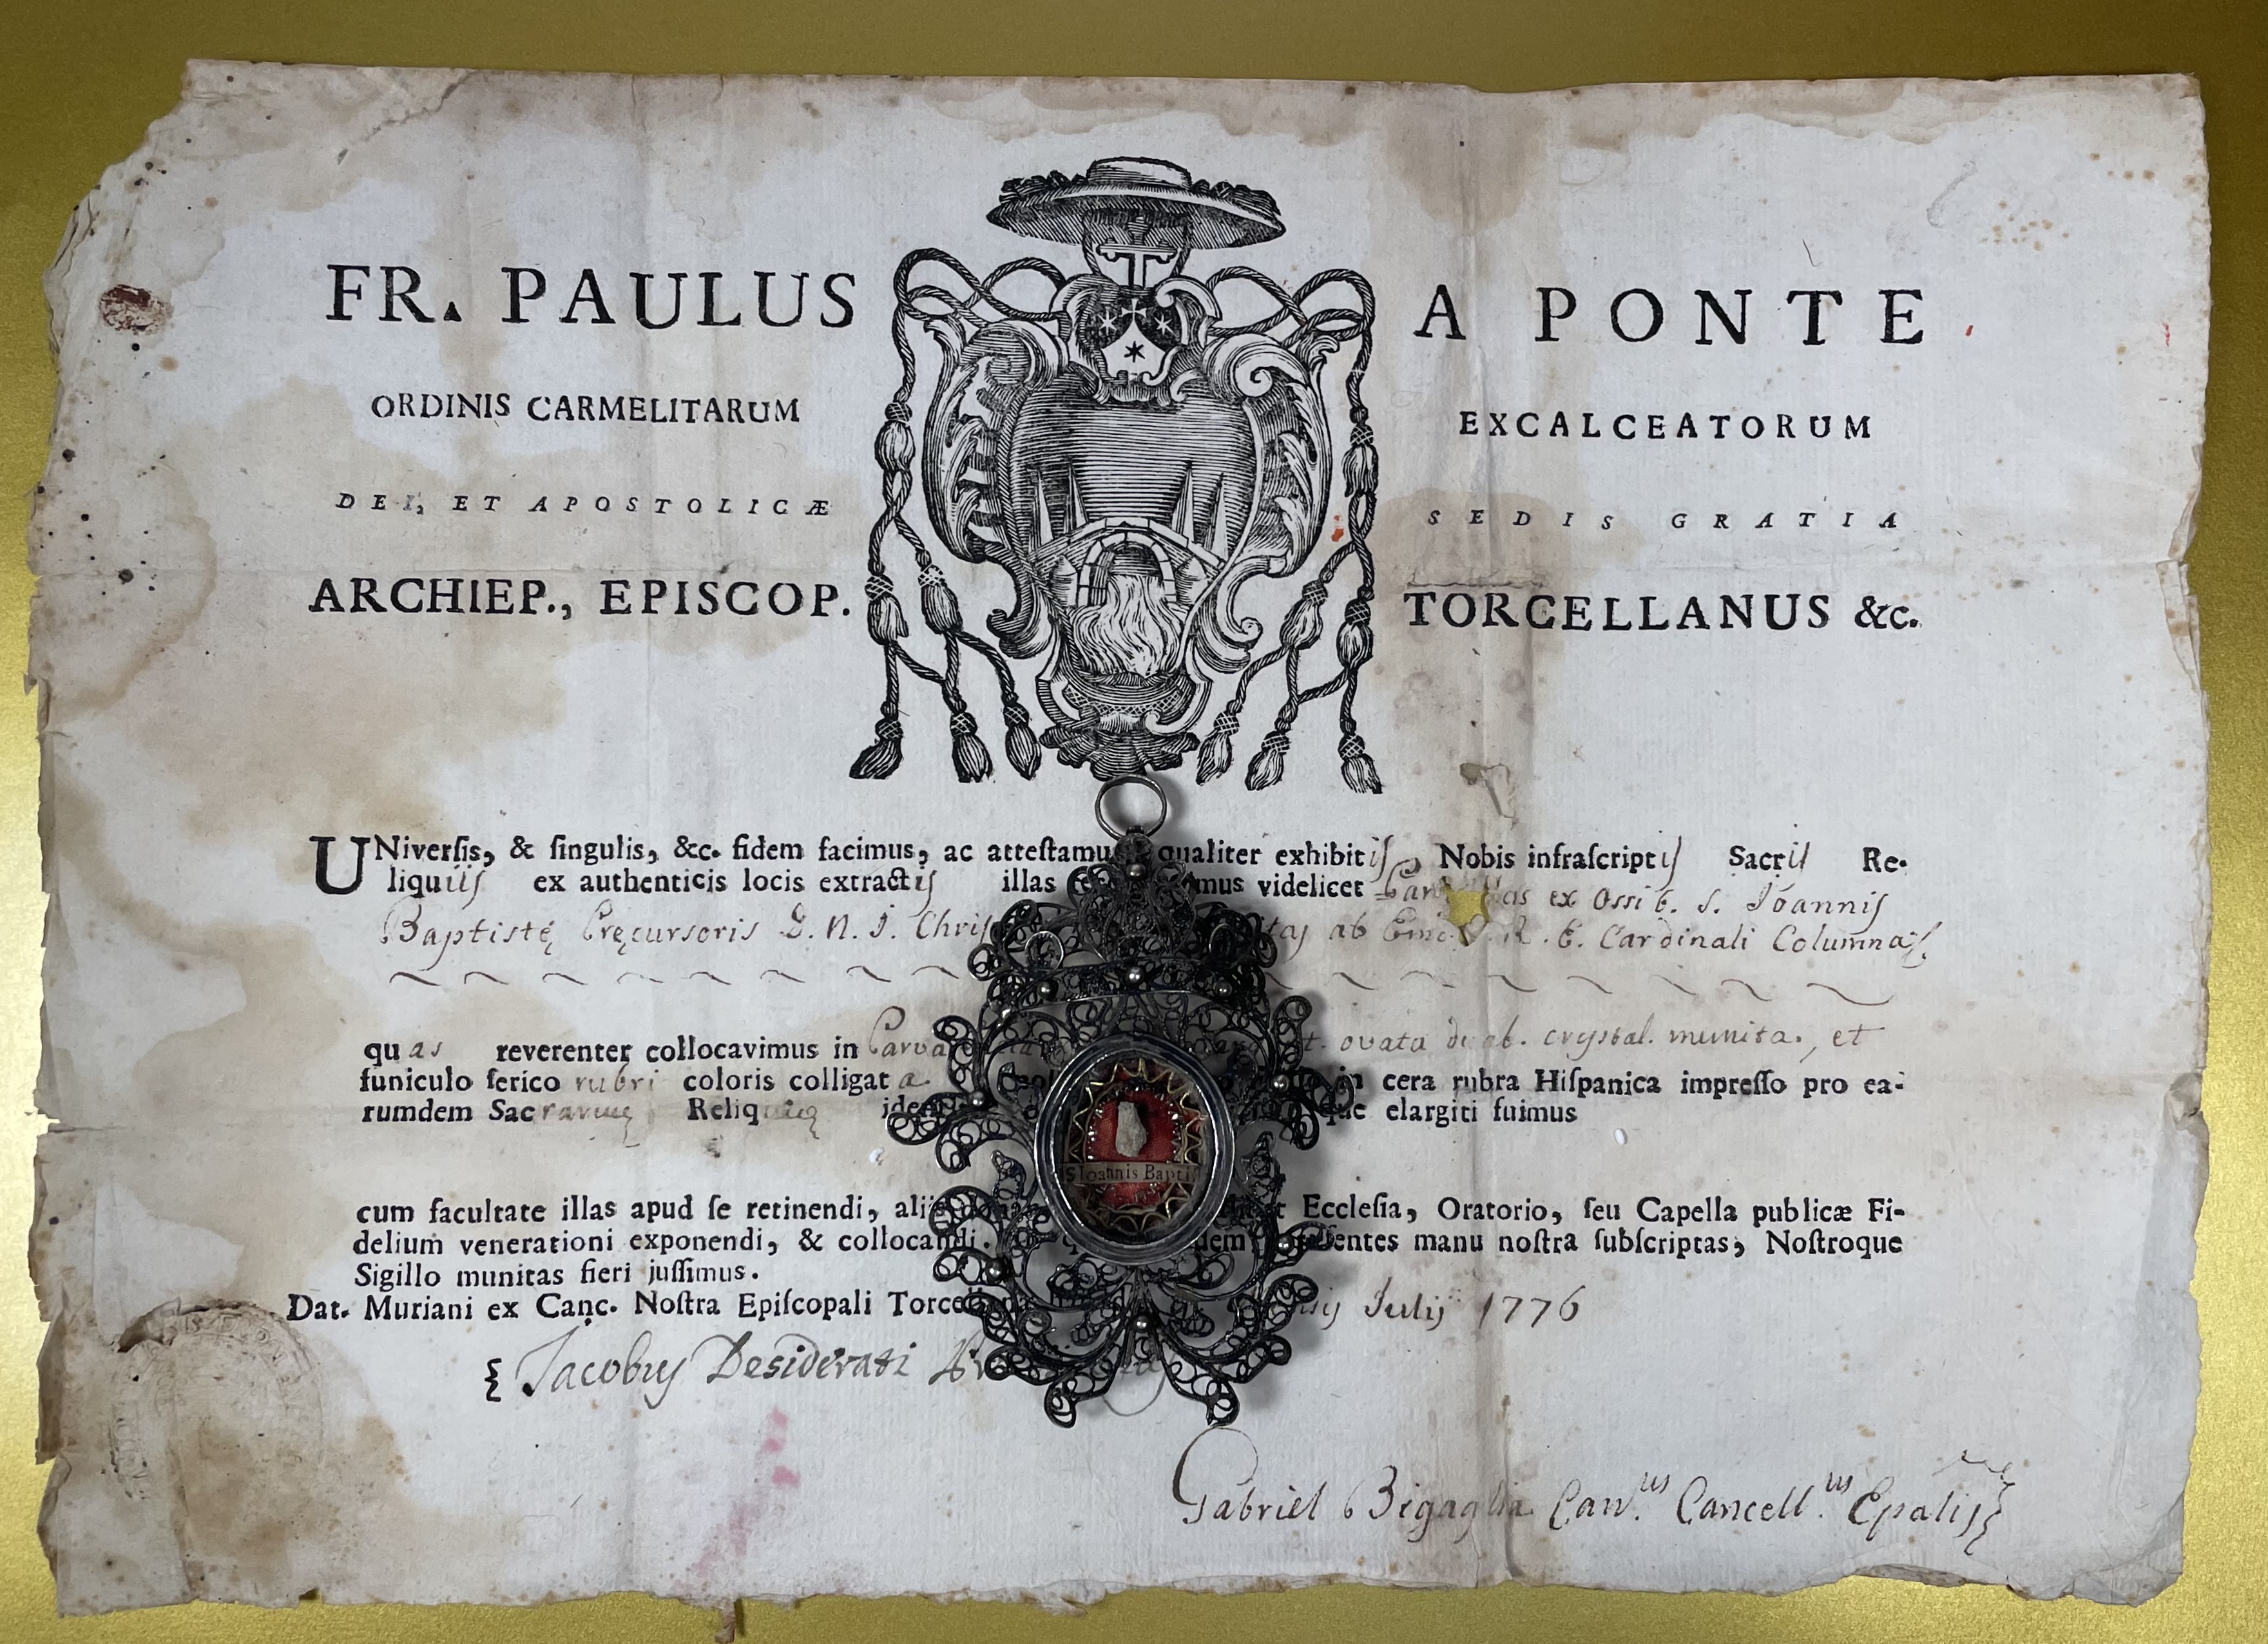 FR. PAULUS A PONTE
ORDINIS CARMELITARUM EXCALCEATORUM
DEI, ET APOSTOLICÆ SEDIS GRATIA
ARCHIEP., EPISCOP. TORCELLANUS &c.
UNiverſis, & ſingulis, &c. fidem facimus, ac atteſtamur qualiter exhibitis Nobis infraſcriptis Sacris Re-
liquiis ex authenticis locis extractis illas videlicet ex Ossib. S. Joannis
Baptistę Pręcursoris D. N. J. Chris ab R. E. Cardinali Columna
quas reverenter collocavimus in Parva ovata crystal. munita, et
funiculo ſerico rubri coloris colligata in cera rubra Hiſpanica impreſſo pro ea-
rumdem Sacrarum Reliq elargiti fuimus
S Ioannis Bapti
cum facultate illas apud ſe retinendi, aliis Eccleſia, Oratorio, ſeu Capella publicæ Fi-
delium venerationi exponendi, & collocandi. manu noſtra ſubſcriptas, Noſtroque
Sigillo munitas fieri juſſimus.
Dat. Muriani ex Canc. Noſtra Epiſcopali Julij 1776
Jacobus Desiderati
Gabriel Bigaglia Can.us Cancell.us Epalis